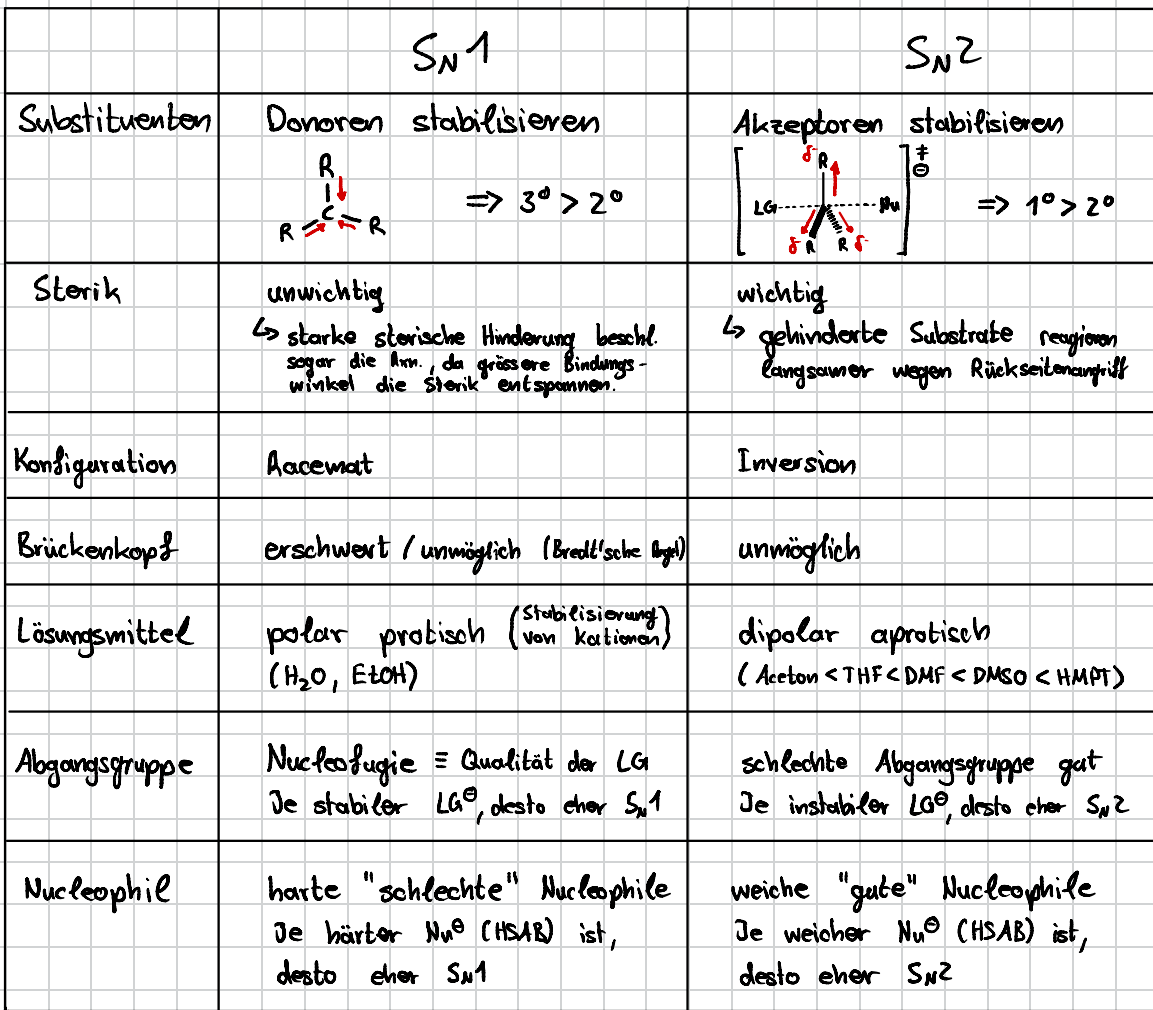 S_N1
S_N2
Substituenten
Donoren stabilisieren
R
C
R
R
=> 3° > 2°
Akzeptoren stabilisieren
δ⁻ R
LG
Nu
δ⁻ R
R δ⁻
‡
⊖
=> 1° > 2°
Sterik
unwichtig
↳ starke sterische Hinderung beschl.
sogar die Rxn., da grössere Bindungs-
winkel die Sterik entspannen.
wichtig
↳ gehinderte Substrate reagieren
langsamer wegen Rückseitenangriff
Konfiguration
Racemat
Inversion
Brückenkopf
erschwert / unmöglich (Bredt'sche Regel)
unmöglich
Lösungsmittel
polar protisch (Stabilisierung
von Kationen)
(H₂O, EtOH)
dipolar aprotisch
(Aceton < THF < DMF < DMSO < HMPT)
Abgangsgruppe
Nucleofugie ≡ Qualität der LG
Je stabiler LG⊖, desto eher S_N1
schlechte Abgangsgruppe gut
Je instabiler LG⊖, desto eher S_N2
Nucleophil
harte "schlechte" Nucleophile
Je härter Nu⊖ (HSAB) ist,
desto eher S_N1
weiche "gute" Nucleophile
Je weicher Nu⊖ (HSAB) ist,
desto eher S_N2